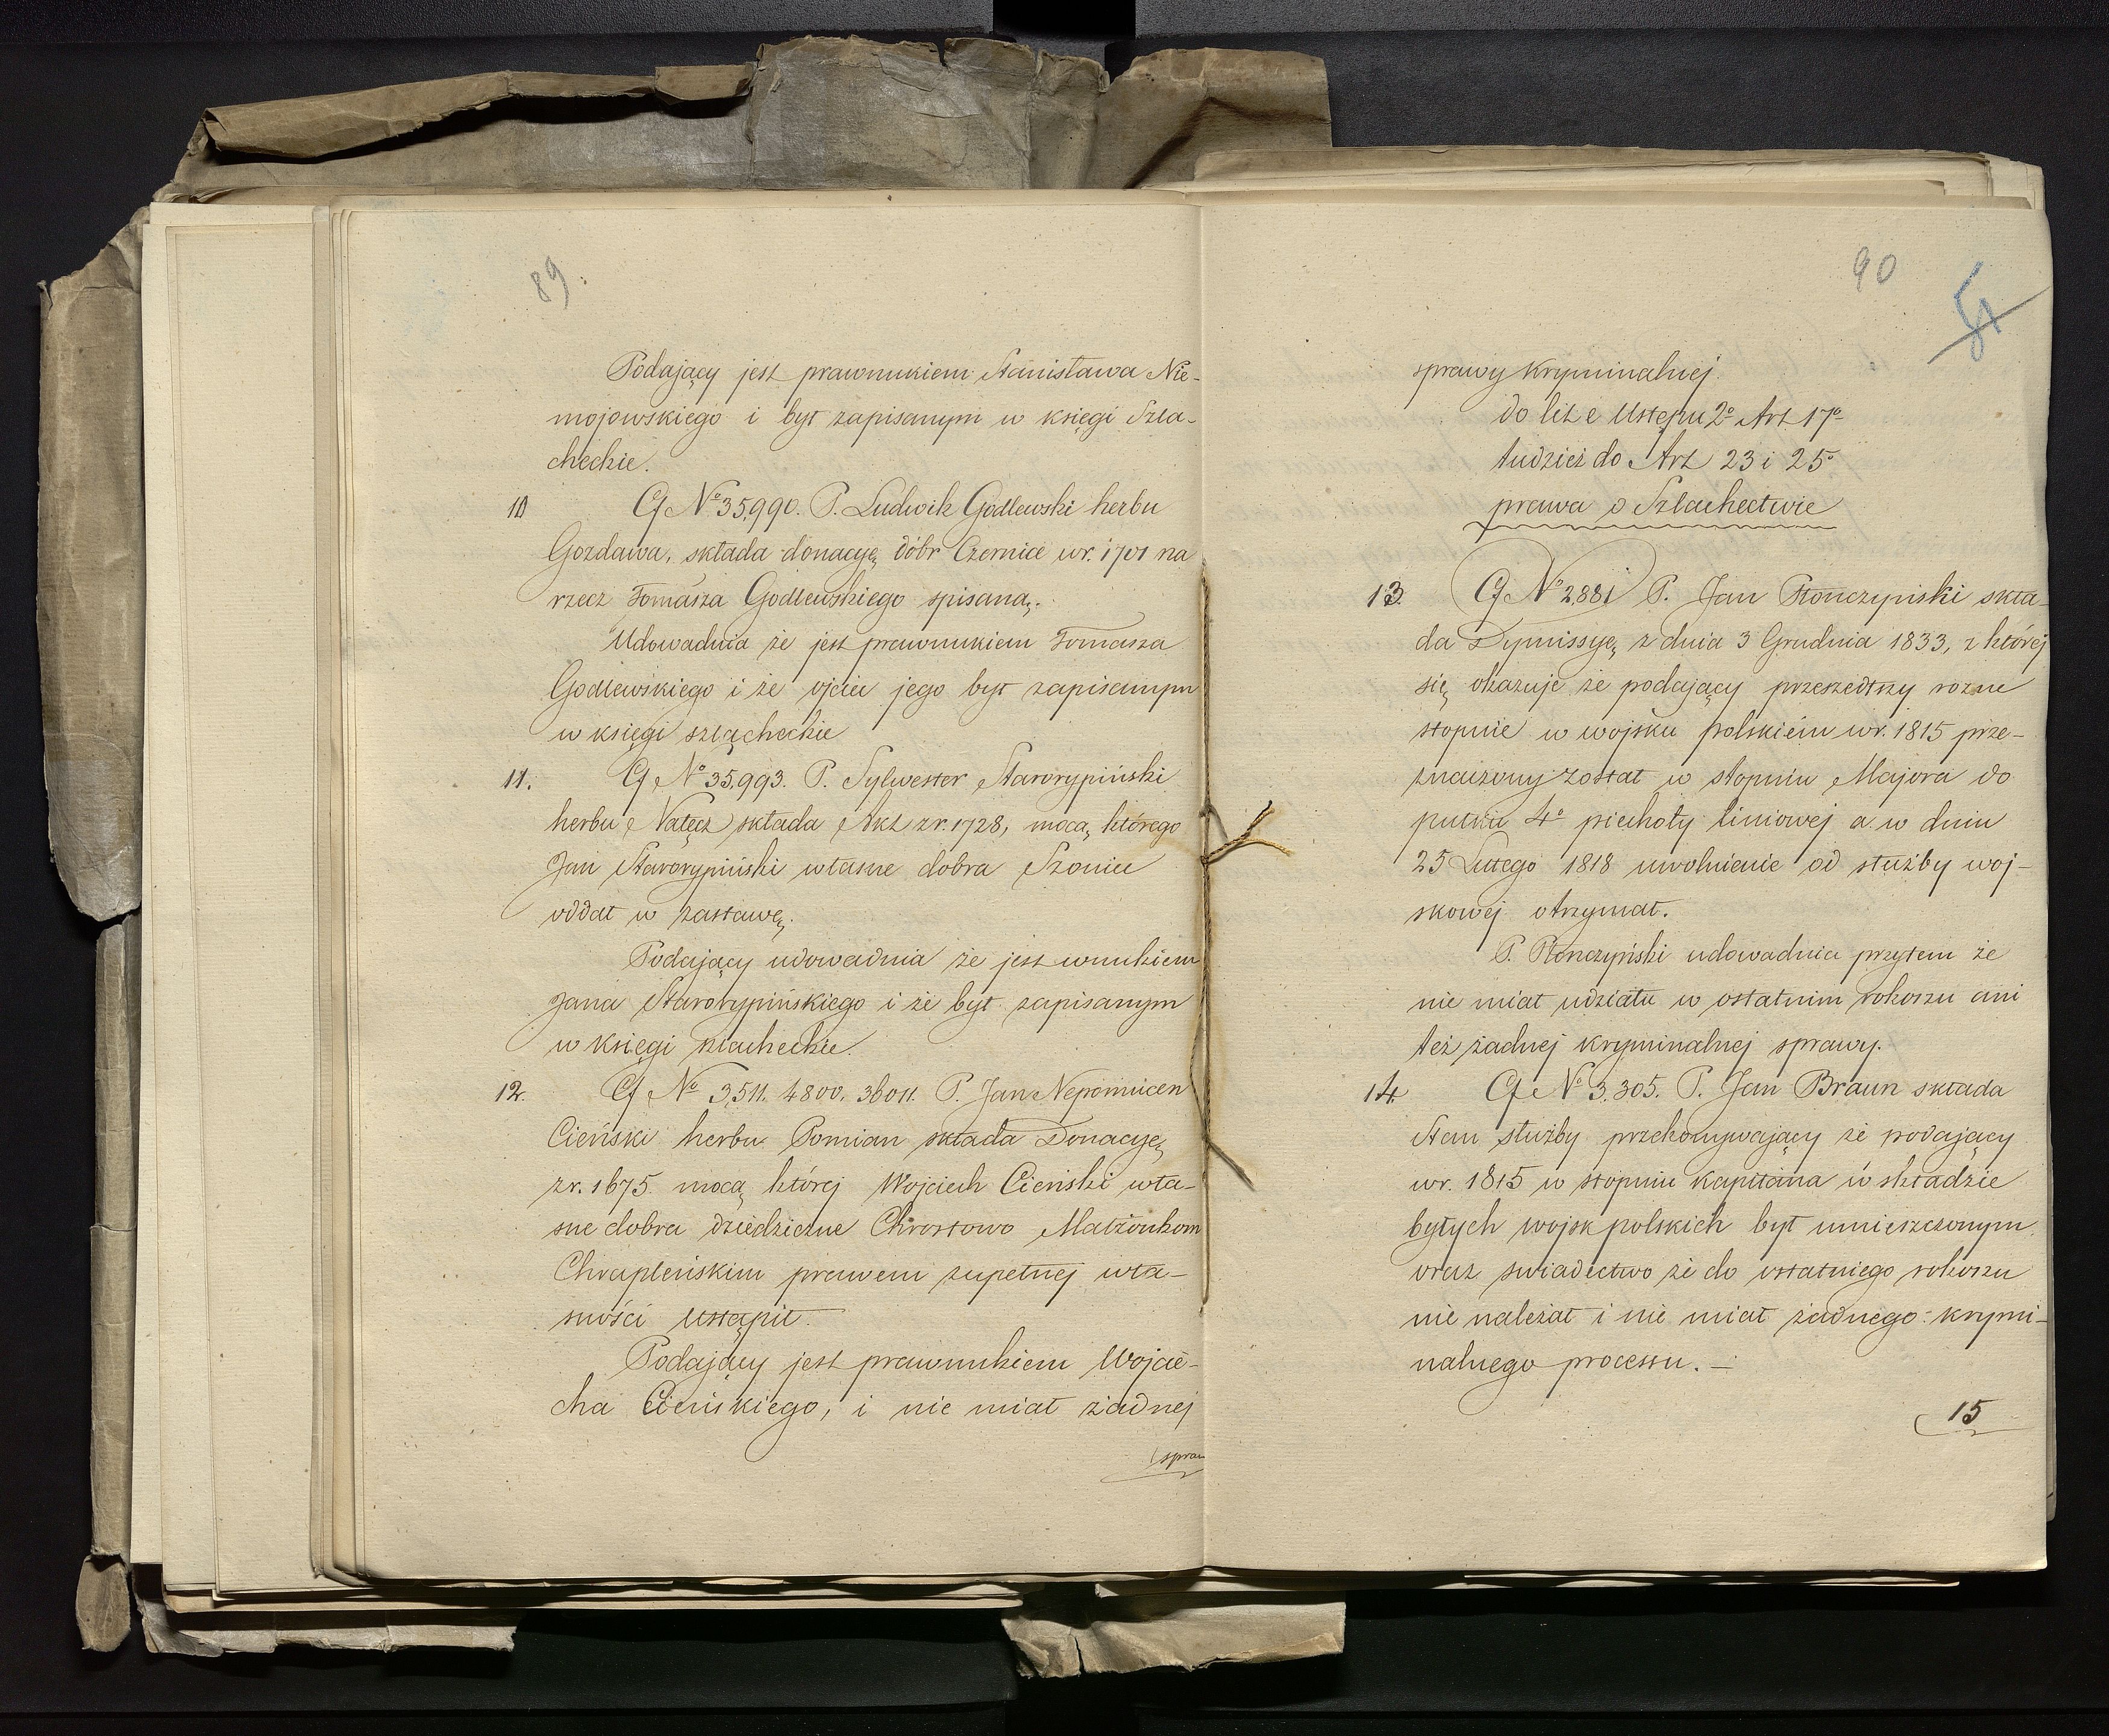 89.
Podający jest prawnukiem Stanisława Nie-
mojowskiego i był zapisanym w księgi Szla-
checkie.
10 Cf Nº 35,990. P. Ludwik Godlewski herbu
Gozdawa, składa donacyę dóbr Czernice w r. 1701 na
rzecz Tomasza Godlewskiego spisaną.
Udowadnia że jest prawnukiem Tomasza
Godlewskiego i że ojciec jego był zapisanym
w księgi szlącheckie
11. Cf Nº 35,993. P. Sylwester Starorypiński
herbu Nałęcz składa Akt z r. 1728, mocą którego
Jan Starorypiński własne dobra
oddał w zastawę.
Podający udowadnia że jest wnukiem
Jana Starorypińskiego i że był zapisanym
w księgi szlacheckie.
12. Cf Nº 3,511. 4800. 36011. P. Jan Nepomucen
Cieński herbu Pomian składa Donacyę
z r. 1675 mocą której Wojciech Cieński wła-
sne dobra dziedziczne Chrostowo Małżonkom
Chrapleńskim prawem zupełnej wła-
sności ustąpił.
Podający jest prawnukiem Wojcie-
cha Cieńskiego, i nie miał żadnej
spraw
90
sprawy kryminalnej.
do lit e Ustępu 2º Art 17º
tudzież do Art 23 i 25º
prawa o Szlachectwie
13. Cf Nº 2,881 P. Jan Płonczyński skła-
da Dymissyę z dnia 3 Grudnia 1833, z której
się okazuje że podający przeszedłszy rożne
stopnie w wojsku polskiém w r. 1815 prze-
znaczony został w stopniu Majora do
pułku 4º piechoty liniowej a w dniu
25 Lutego 1818 uwolnienie od służby woj-
skowej otrzymał.
P. Płonczyński udowadnia przytem że
nie miał udziału w ostatnim rokoszu ani
też żadnej kryminalnej sprawy.
14. Cf Nº 3.305. P. Jan Braun składa
Stan służby przekonywający że podający
w r. 1815 w stopniu Kapitana w składzie
byłych wojsk polskich był umieszczonym
oraz świadectwo że do ostatniego rokoszu
nie należał i nie miał żadnego krymi-
nalnego processu. —
15